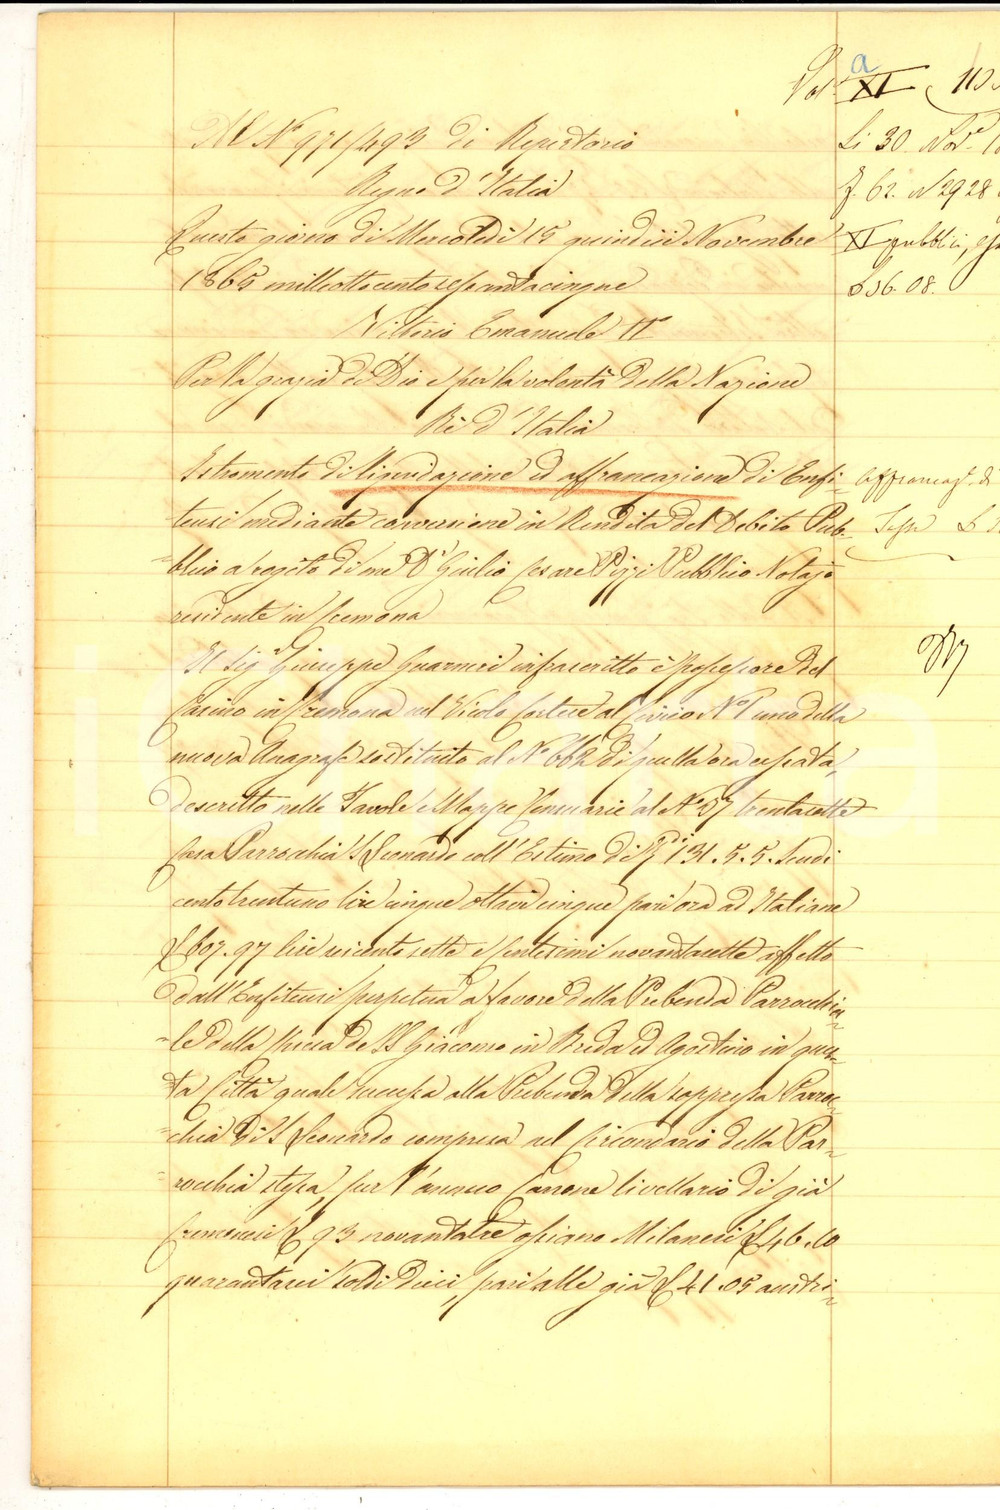 Al N° 971/493 di Repertorio
Regno d'Italia
Questo giorno di Mercoledì 15 quindici Novembre
1865 milleottocentosessantacinque
Vittorio Emanuele II°
Per la grazia di Dio e per la volontà della Nazione
Rè d'Italia
Istromento di liquidazione ed affrancazione di Enfi-
teusi mediante conversione in Rendita del Debito Pub-
blico a rogito di me Dr Giulio Cesare Pizzi Pubblico Notajo
residente in Cremona
Il Sigr Giuseppe Guarneri infrascritto è possessore del
Casino in Cremona nel Vicolo Cortese al Civico N° 1 uno della
nuova Anagrafe sostituito al N° 662 di quella ora cessata,
descritto nelle Tavole e Mappe Censuarie al N° 37 trentasette
Casa Parrocchia S. Leonardo coll'Estimo di 131. 5. 5. Scudi
centotrentuno lire cinque ottavi cinque pari ora ad Italiane
£ 607. 97 lire seicento sette e Centesimi novantasette affetto
dall'Enfiteusi perpetua a favore della Prebenda Parrocchia-
le della Chiesa de SS Giacomo in Breda ed Agostino in ques-
ta Città quale successa alla Prebenda della soppressa Parroc-
chia di S Leonardo compresa nel Circondario della Par-
rocchia stessa, per l'annuo Canone livellario di già
Cremonesi £ 93 novantatre ossiano Milanesi £ 46. 10
quarantasei soldi dieci, pari alle già £ 41. 05 austri-
Vol. a XI
Li 30 Nov.
f. 62. N 2928
XI pubblici,
£ 36. 08.
Affrancaz. di